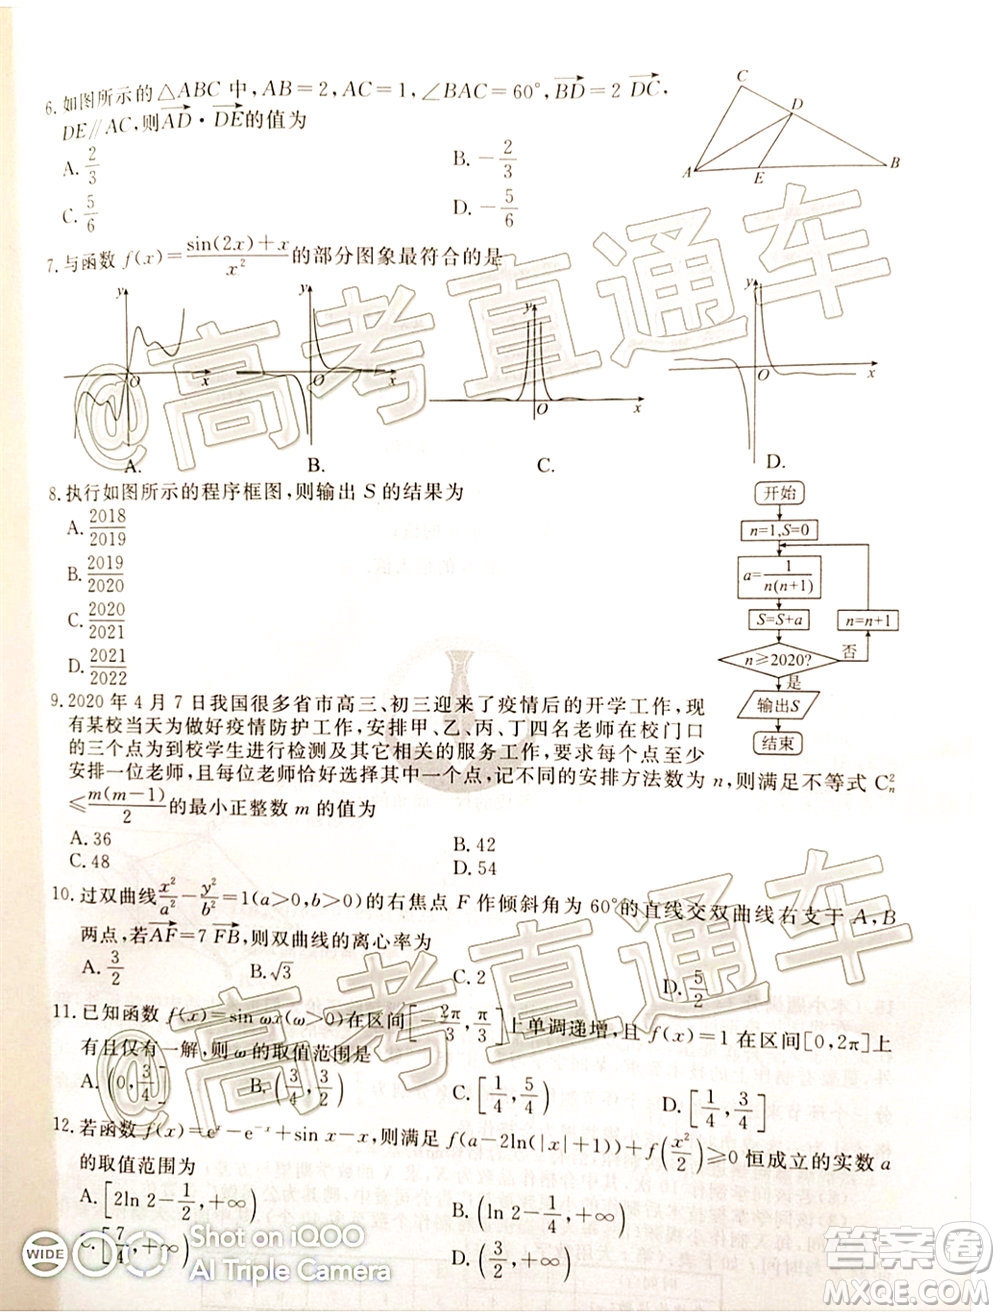 6.如图所示的△ABC中,AB=2,AC=1,∠BAC=60°,$\overrightarrow{BD}=2\overrightarrow{DC}$,
DE∥AC,则$\overrightarrow{AD}\cdot\overrightarrow{DE}$的值为
A. $\frac{2}{3}$ B. $-\frac{2}{3}$
C. $\frac{5}{6}$ D. $-\frac{5}{6}$
C
D
A
E
B
7.与函数 $f(x)=\frac{\sin(2x)+x}{x^2}$的部分图象最符合的是
y y y y
O x O x O x O x
A. B. C. D.
8.执行如图所示的程序框图,则输出 S 的结果为
A. $\frac{2018}{2019}$
B. $\frac{2019}{2020}$
C. $\frac{2020}{2021}$
D. $\frac{2021}{2022}$
开始
n=1,S=0
$a=\frac{1}{n(n+1)}$
S=S+a
n=n+1
n≥2020?
否
是
输出S
结束
9.2020 年 4 月 7 日我国很多省市高三、初三迎来了疫情后的开学工作,现
有某校当天为做好疫情防护工作,安排甲、乙、丙、丁四名老师在校门口
的三个点为到校学生进行检测及其它相关的服务工作,要求每个点至少
安排一位老师,且每位老师恰好选择其中一个点,记不同的安排方法数为 n,则满足不等式 $C_n^2$
$\leqslant\frac{m(m-1)}{2}$的最小正整数 m 的值为
A. 36 B. 42
C. 48 D. 54
10.过双曲线$\frac{x^2}{a^2}-\frac{y^2}{b^2}=1(a>0,b>0)$的右焦点 F 作倾斜角为 60°的直线交双曲线右支于 A,B
两点,若$\overrightarrow{AF}=7\overrightarrow{FB}$,则双曲线的离心率为
A. $\frac{3}{2}$ B. $\sqrt{3}$ C. 2 D. $\frac{5}{2}$
11.已知函数 $f(x)=\sin\omega x(\omega>0)$在区间$\left[-\frac{2\pi}{3},\frac{\pi}{3}\right]$上单调递增,且 $f(x)=1$ 在区间$[0,2\pi]$上
有且仅有一解,则ω的取值范围是
A. $\left(0,\frac{3}{4}\right]$ B. $\left[\frac{3}{4},\frac{3}{2}\right)$ C. $\left[\frac{1}{4},\frac{5}{4}\right)$ D. $\left[\frac{1}{4},\frac{3}{4}\right]$
12.若函数 $f(x)=e^x-e^{-x}+\sin x-x$,则满足 $f(a-2\ln(|x|+1))+f\left(\frac{x^2}{2}\right)\geqslant 0$ 恒成立的实数 a
的取值范围为
A. $\left[2\ln 2-\frac{1}{2},+\infty\right)$ B. $\left(\ln 2-\frac{1}{4},+\infty\right)$
C. $\left[\frac{7}{4},+\infty\right)$ D. $\left(\frac{3}{2},+\infty\right)$
@高考直通车
@高考直通车
WIDE
Shot on iQOO
AI Triple Camera
答案圈
MXQE.COM